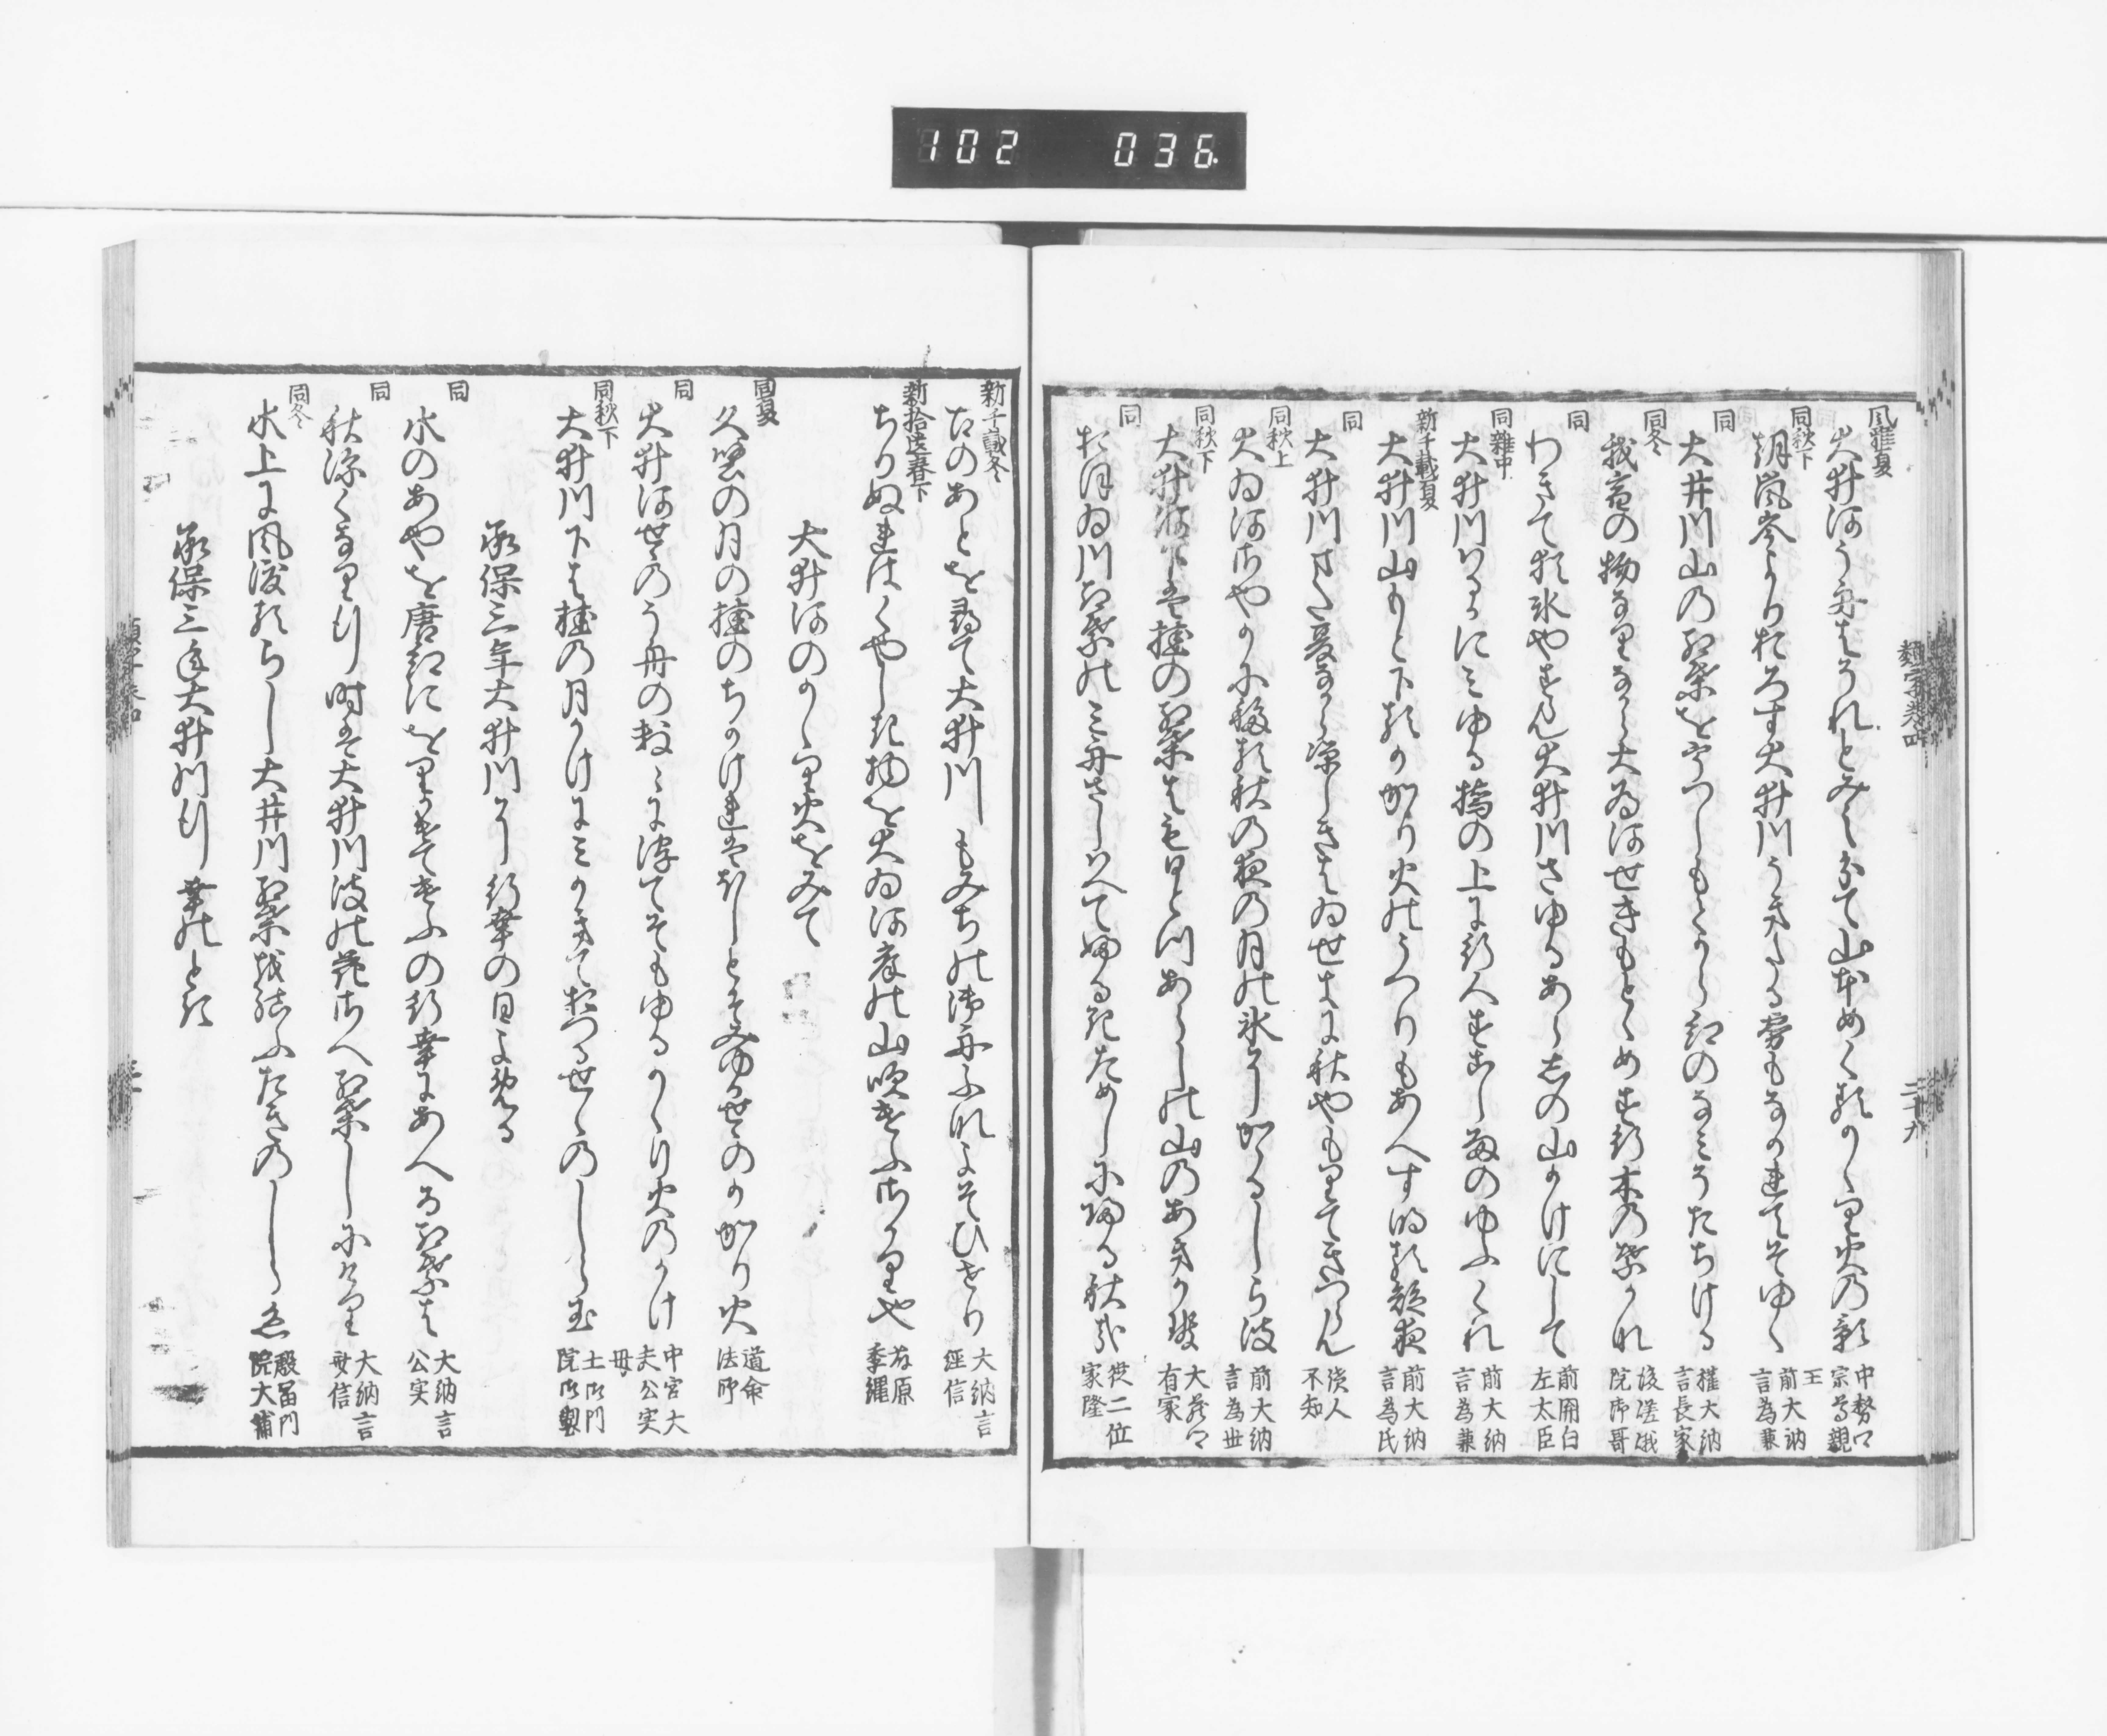 102 036
類字巻四
二十九
風雅夏
大井河う舟はそれとみえわかて山本めくるかゝり火の影
中務卿宗尊親王
同秋下
朝嵐峯よりおろす大井川うきたる霧もなかれてそゆく
前大納言為兼
同
大井川山の紅葉をうつしもてからにしきのなみそたちける
権大納言長家
同冬
我宿の物なりなから大井河せきもとゝめす行木の葉かな
後嵯峨院御哥
同
わきて猶氷やすらん大井川さゆるあらしの山かけにして
前関白左大臣
同雑中
大井川はるかにみゆる橋の上に行人すこし雨のゆふくれ
前大納言為兼
新千載夏
大井川山もと下るかゝり火のうつりもあへす明る短夜
前大納言為氏
同
大井川また夏なから涼しきはゐせきに秋やもりてきつらん
読人不知
同秋上
大ゐ河はやかにみえる秋の夜の月の氷そかゝるしら波
前大納言為世
同秋下
大井河下は桂の紅葉はも日とつあらしの山のあきかせ
大蔵卿有家
同
おほゐ川紅葉の三舟さしかへて如るきためしに帰る秋哉
従二位家隆
新千載冬
古のあとを尋て大井川もみちの御舟ふなよそひせり
大納言経信
新拾遺春下
ちりぬれはくやしき物を大ゐ河岸の山吹けふさかりや
藤原季縄
大井河のかゝり火をみて
同夏
久堅の月の桂のちかけれはほしとそみゆるせゝのかゝり火
道命法師
同
大井河せゝのう舟の数々に浮てそもゆるかゝり火のかけ
中宮大夫公実母
同秋下
大井川下は桂の月かけにみかきておつるせゝのしら玉
土御門院御製
承保三年大井川に行幸の日よめる
同
水のあやを唐錦にをりかけてけふの行幸にあへる紅葉は
大納言公実
同
秋深くなりもり時は大井川波の花さへ紅葉しにけり
大納言経信
同冬
水上に風渡るらし大井川紅葉を結ふたきのしらいと
殷富門院大輔
承保三年大井川行幸のとき